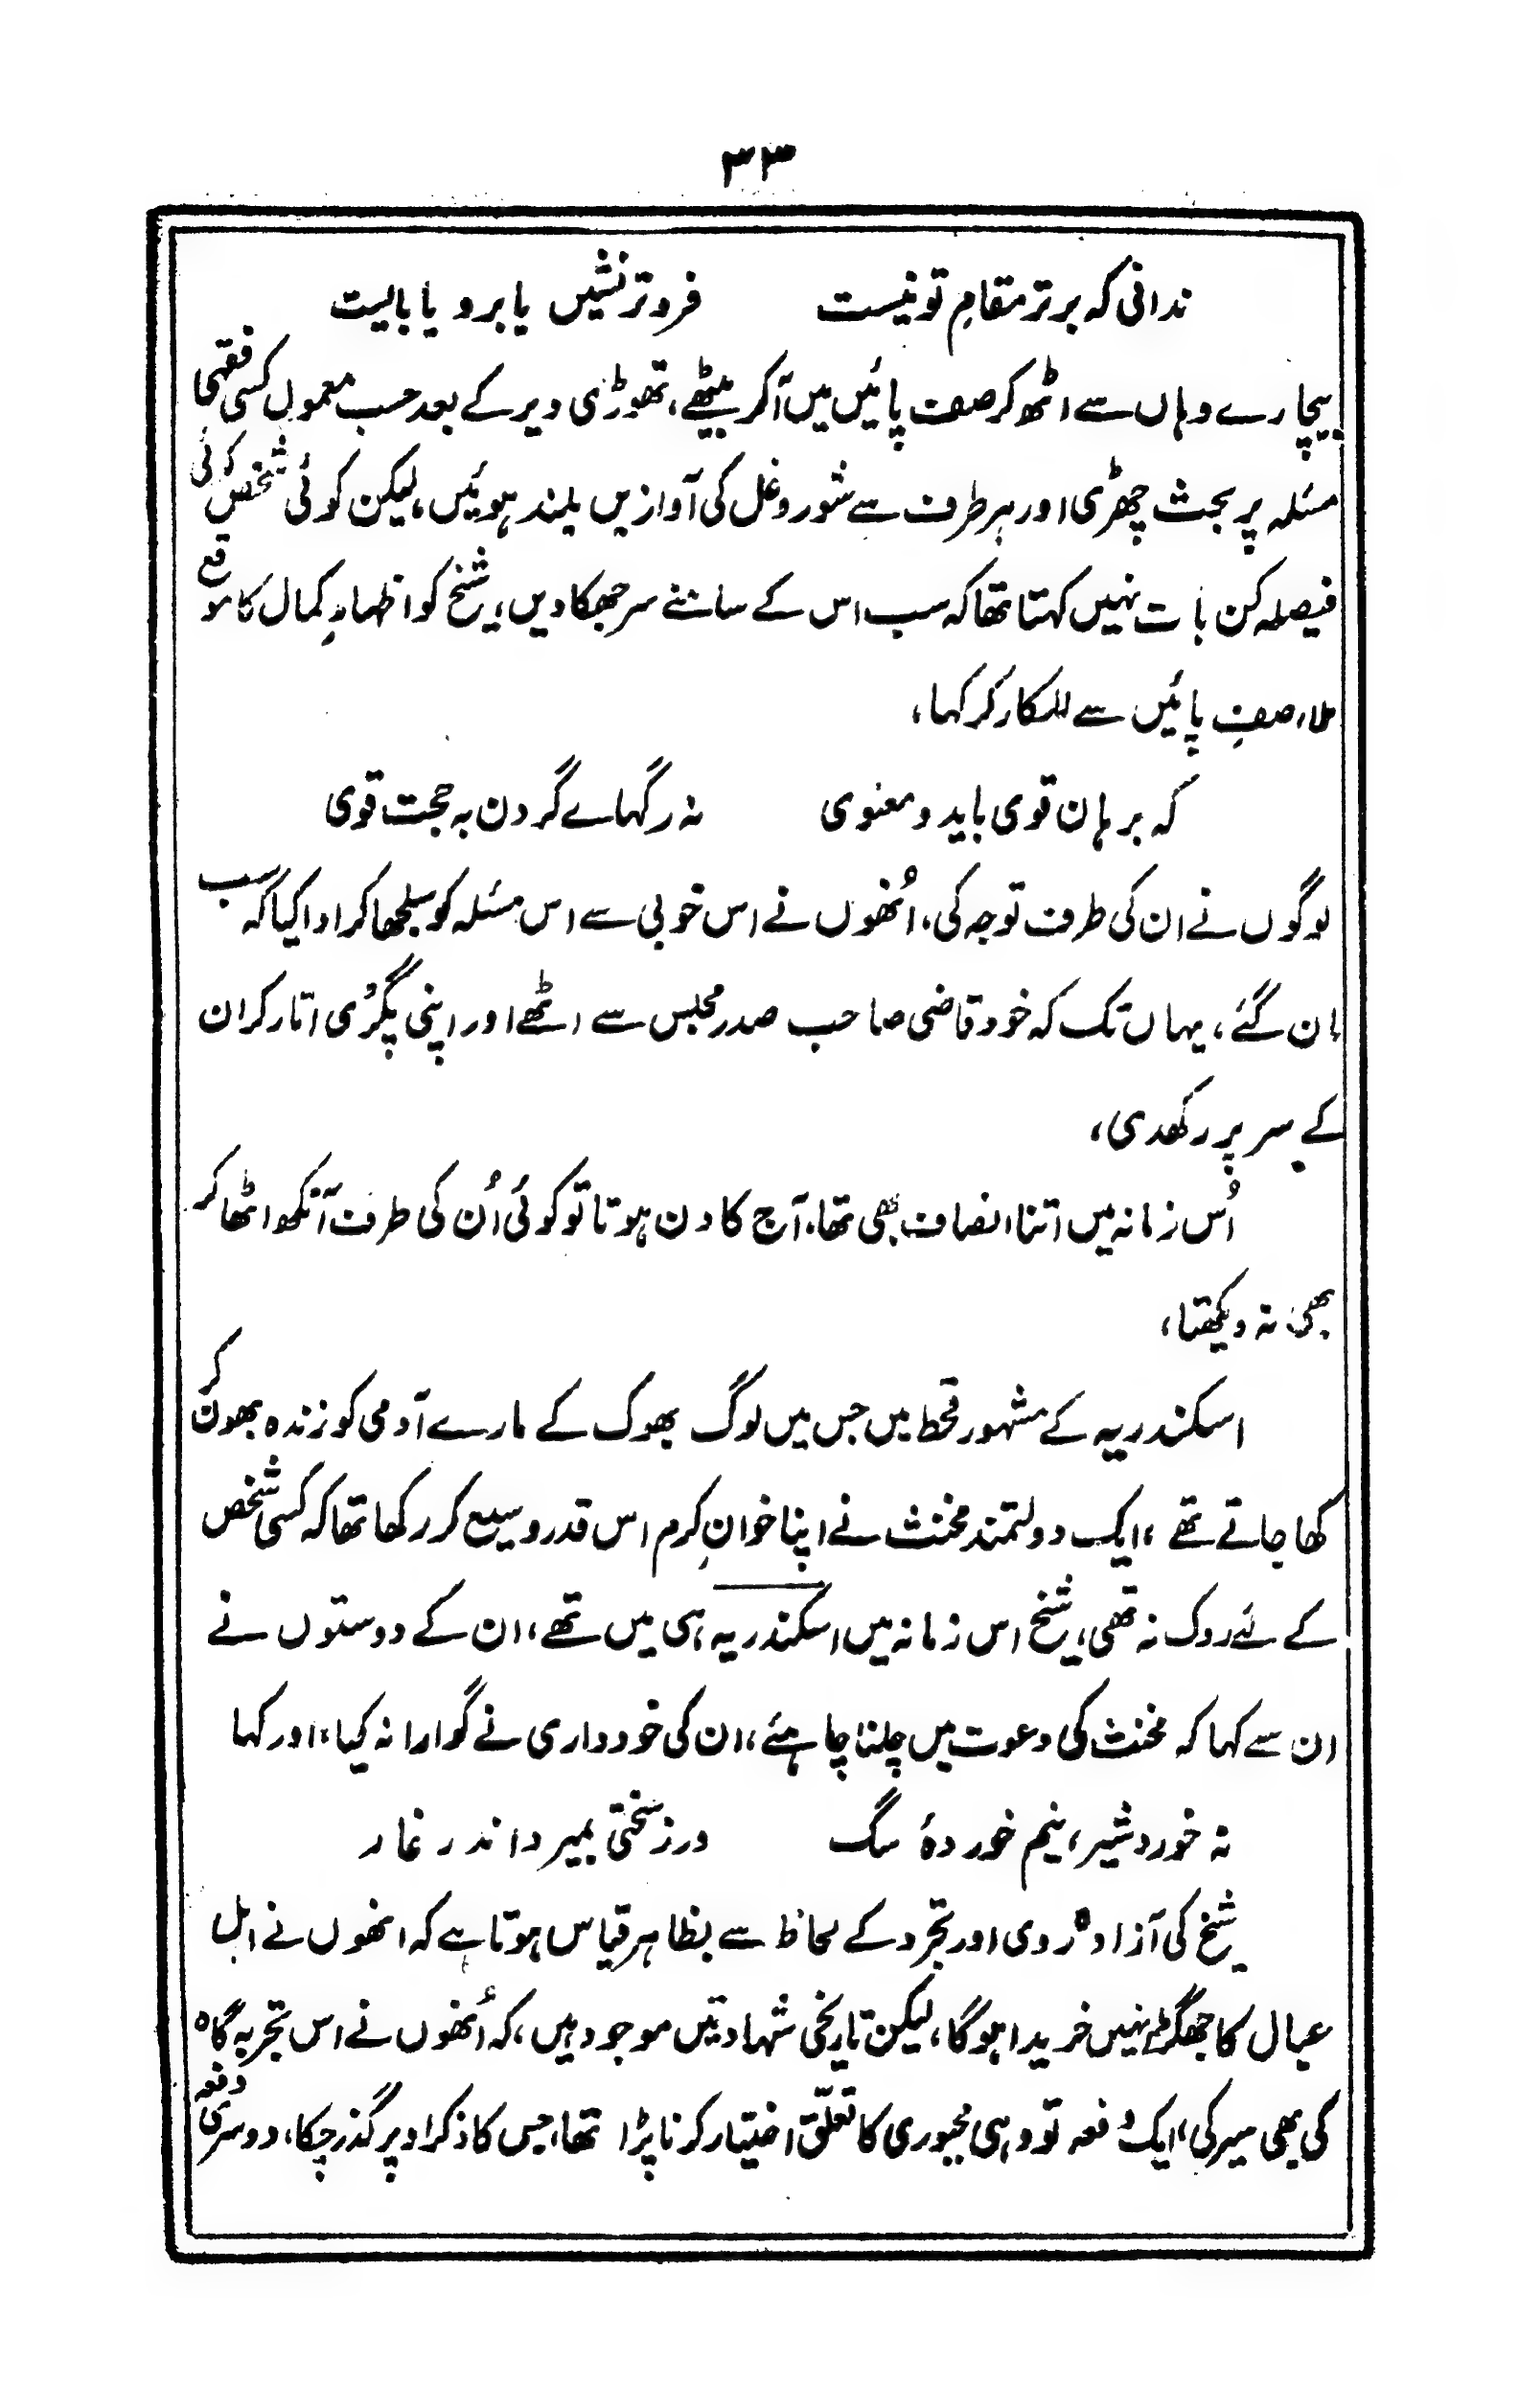 ۳۳
ندانی کہ برتر مقامِ تو نیست    فروتر نشیں یا برو یا بالیست
بیچارے وہاں سے اٹھ کر صف پائیں میں آکر بیٹھے، تھوڑی دیر کے بعد حسب معمول کسی فقہی
مسئلہ پر بحث چھڑی اور ہر طرف سے شور و غل کی آوازیں بلند ہوئیں، لیکن کوئی شخص کوئی
فیصلہ کن بات نہیں کہتا تھا کہ سب اس کے سامنے سر جھکا دیں، شیخ کو اظہارِ کمال کا موقع
ملا، صفِ پائیں سے للکار کر کہا،
کہ برہان قوی باید و معنوی    نہ رگہاے گردن بہ حجت قوی
لوگوں نے ان کی طرف توجہ کی، اُنھوں نے اس خوبی سے اس مسئلہ کو سلجھا کر ادا کیا کہ سب
مان گئے، یہاں تک کہ خود قاضی صاحب صدر مجلس سے اٹھے اور اپنی پگڑی اتار کر ان
کے سر پر رکھدی،
اُس زمانہ میں اتنا انصاف بھی تھا، آج کا دن ہوتا تو کوئی اُن کی طرف آنکھ اٹھا کر
بھی نہ دیکھتا،
اسکندریہ کے مشہور قحط میں جس میں لوگ بھوک کے مارے آدمی کو زندہ بھون کر
کھا جاتے تھے، ایک دولتمند مخنث نے اپنا خوانِ کرم اس قدر وسیع کر رکھا تھا کہ کسی شخص
کے لئے روک نہ تھی، شیخ اس زمانہ میں اسکندریہ ہی میں تھے، ان کے دوستوں نے
ان سے کہا کہ مخنث کی دعوت میں چلنا چاہئے، ان کی خودداری نے گوارا نہ کیا، اور کہا
نہ خورد شیر، نیم خوردۂ سگ    ورز سختی بمیرد اندر غار
شیخ کی آزادہ روی اور تجرد کے لحاظ سے بظاہر قیاس ہوتا ہے کہ انھوں نے اہل
عیال کا جھگڑا نہیں خریدا ہوگا، لیکن تاریخی شہادتیں موجود ہیں، کہ اُنھوں نے اس تجربہ گاہ
کی بھی سیر کی، ایک دفعہ تو وہی مجبوری کا تعلّق اختیار کرنا پڑا تھا، جس کا ذکر اوپر گذر چکا، دوسری دفعہ